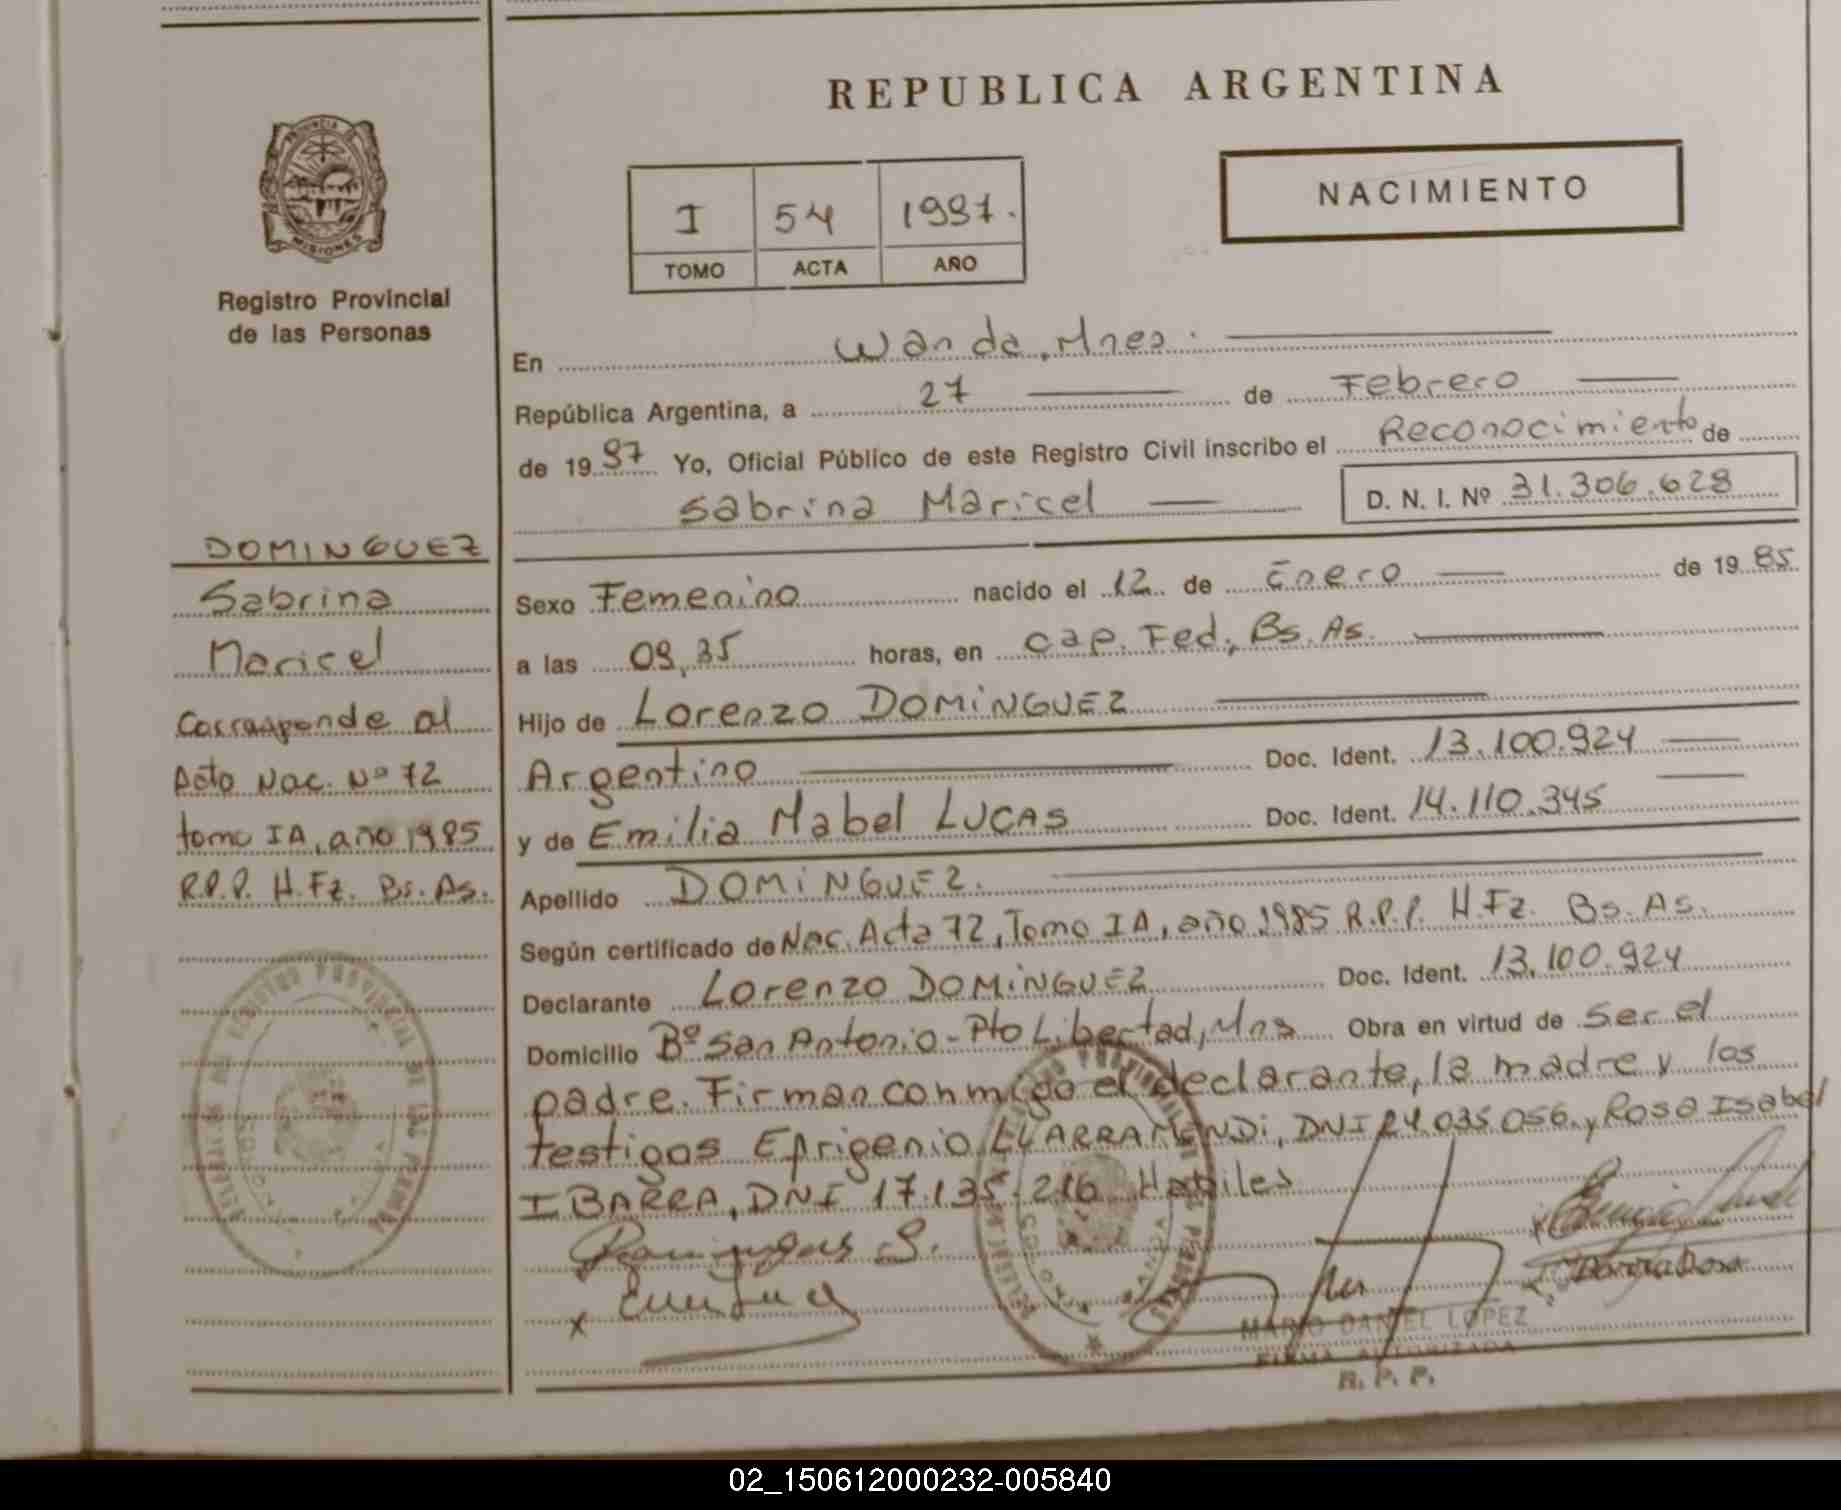 REPUBLICA ARGENTINA
PROVINCIA DE
MISIONES
Registro Provincial
de las Personas
NACIMIENTO
I 54 1997.
TOMO ACTA AÑO
En Wanda, Mnes.
República Argentina, a 27 de Febrero
de 1997 Yo, Oficial Público de este Registro Civil inscribo el Reconocimiento de
Sabrina Maricel D. N. I. Nº 31.306.628
Sexo Femenino nacido el 12 de Enero de 1985
a las 09,35 horas, en Cap. Fed., Bs. As.
Hijo de Lorenzo DOMINGUEZ
Argentino Doc. Ident. 13.100.924
y de Emilia Mabel LUCAS Doc. Ident. 14.110.345
Apellido DOMINGUEZ.
Según certificado de Nac. Acta 72, Tomo IA, año 1985 R.P.P. H.Fz. Bs. As.
Declarante Lorenzo DOMINGUEZ Doc. Ident. 13.100.924
Domicilio Bº San Antonio - Pto Libertad, Mns Obra en virtud de Ser el
padre. Firman conmigo el declarante, la madre y los
testigos Efrigenio LLARRAMENDI, DNI 24.035.056. y Rosa Isabel
IBARRA, DNI 17.135.216 Habiles
DOMINGUEZ
Sabrina
Maricel
Corresponde al
Acta Nac. Nº 72
tomo IA, año 1985
R.P.P. H.Fz. Bs. As.
x
MARIO DANIEL LOPEZ
FIRMA AUTORIZADA
R. P. P.
02_150612000232-005840